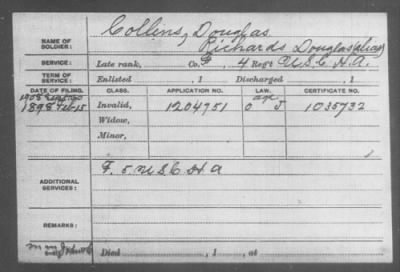 NAME OF SOLDIER: Collins, Douglas
Richards Douglas (alias)
SERVICE: Late rank, Co. F, 4 Reg't U.S.C.H.A.
TERM OF SERVICE: Enlisted , 1 Discharged , 1
DATE OF FILING. CLASS. APPLICATION NO. LAW. CERTIFICATE NO.
1908
1898 Feb-15 Invalid, 1204951 age 0 J 1035732
Widow,
Minor,
ADDITIONAL SERVICES: F. 5. U S C H A
REMARKS:
Died , 1 , at